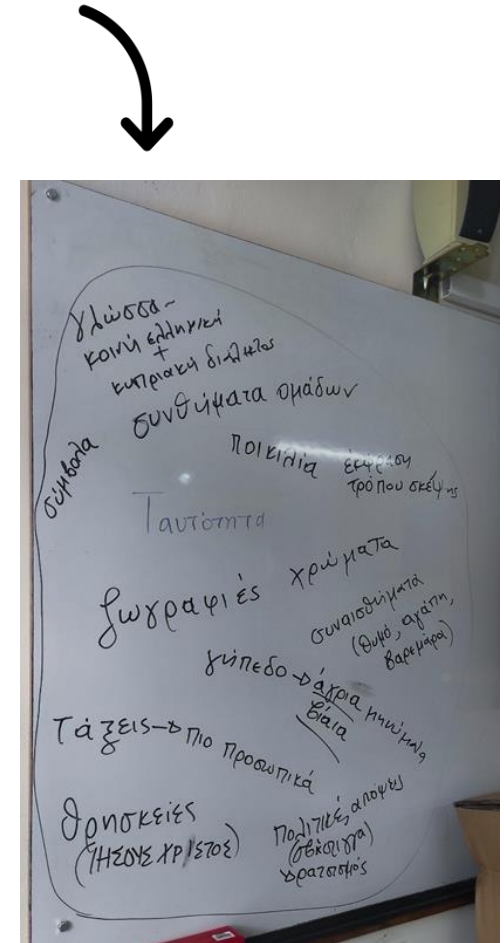 γλώσσα~
κοινή ελληνική
+
κυπριακή διάλεκτος
συνθήματα ομάδων
σύμβολα
ποικιλία
έκφραση
τρόπου σκέψης
Ταυτότητα
ζωγραφιές χρώματα
συναισθήματα
(θυμό, αγάπη,
βαρεμάρα)
γήπεδο → άγρια μηνύματα
βίαια
Τάξεις → πιο προσωπικά
θρησκείες
(ΙΗΣΟΥΣ ΧΡΙΣΤΟΣ)
πολιτικές απόψεις
(σβάστιγγα)